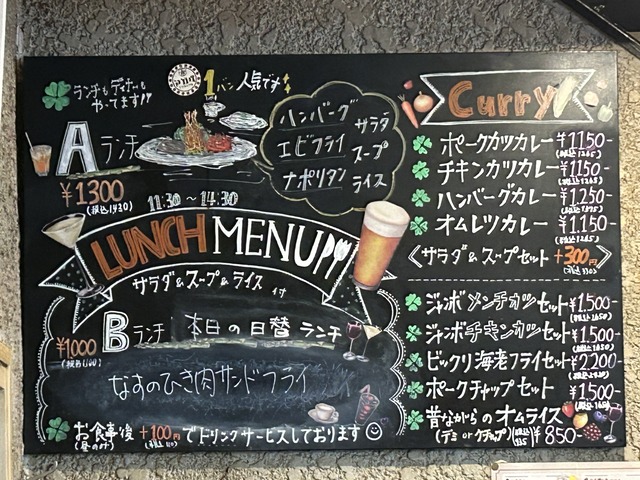 ランチもディナーも
やってます!!
1バン人気です
Aランチ
¥1300
(税込1430)
ハンバーグ サラダ
エビフライ スープ
ナポリタン ライス
11:30～14:30
LUNCH MENU
サラダ&スープ&ライス付
Bランチ 本日の日替ランチ
¥1000
(税込1100)
なすのひき肉サンドフライ
お食事後 +100円でドリンクサービスしております
(昼のみ) (税込110)
Curry
ポークカツカレー ¥1150-
(税込1265)
チキンカツカレー ¥1150-
(税込1265)
ハンバーグカレー ¥1,250-
(税込1375)
オムレツカレー ¥1,150-
(税込1265)
〈サラダ&スープセット +300円〉
(税込330)
ジャンボメンチカツセット ¥1,500-
(税込1650)
ジャンボチキンカツセット ¥1,500-
(税込1650)
ビックリ海老フライセット ¥2,200-
(税込2420)
ポークチャップセット ¥1,500-
(税込1650)
昔ながらのオムライス
(デミorケチャップ) (税込935) ¥850-